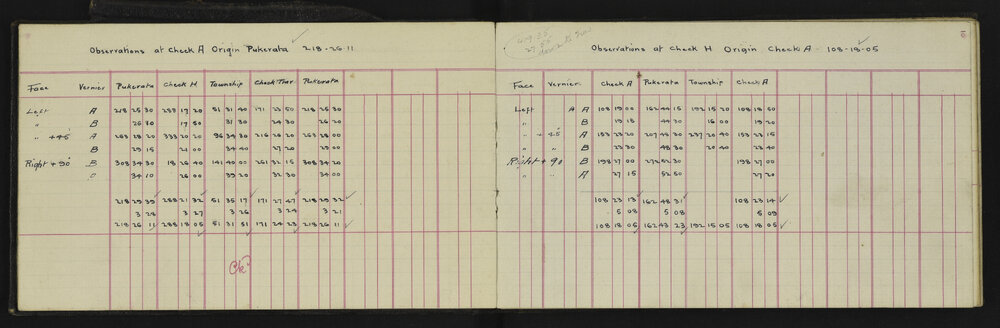 Observations at Check A Origin Pukerata 218-26-11
Face Vernier Pukerata Check H Township Check Thor Pukerata
Left A 218 25 30 288 17 20 51 31 40 171 23 50 218 25 30
" B 26 30 17 50 31 30 24 30 26 20
" +45° A 263 28 20 333 20 20 96 34 30 216 26 20 263 28 00
" B 29 15 21 00 34 40 27 20 29 00
Right +90° B 308 34 30 18 26 40 141 40 00 261 32 15 308 34 20
" 34 10 26 00 39 20 32 30 34 00
218 29 39 288 21 32 51 35 17 171 27 47 218 29 32
3 28 3 27 3 26 3 24 3 21
218 26 11 288 18 05 51 31 51 171 24 23 218 26 11
Ck
Observations at Check H Origin Check A 108-18-05
Face Vernier Check A Pukerata Township Check A
Left A A 108 19 00 162 44 15 192 15 20 108 18 50
" B 19 15 44 30 16 00 19 20
" +45° A 153 23 20 207 48 30 237 20 40 153 23 15
" B 23 30 48 30 20 40 23 40
Right +90 B 198 27 00 272 52 30 198 27 00
" " A 27 15 52 50 27 20
108 23 13 162 48 31 108 23 14
5 08 5 08 5 09
108 18 05 162 43 23 192 15 05 108 18 05